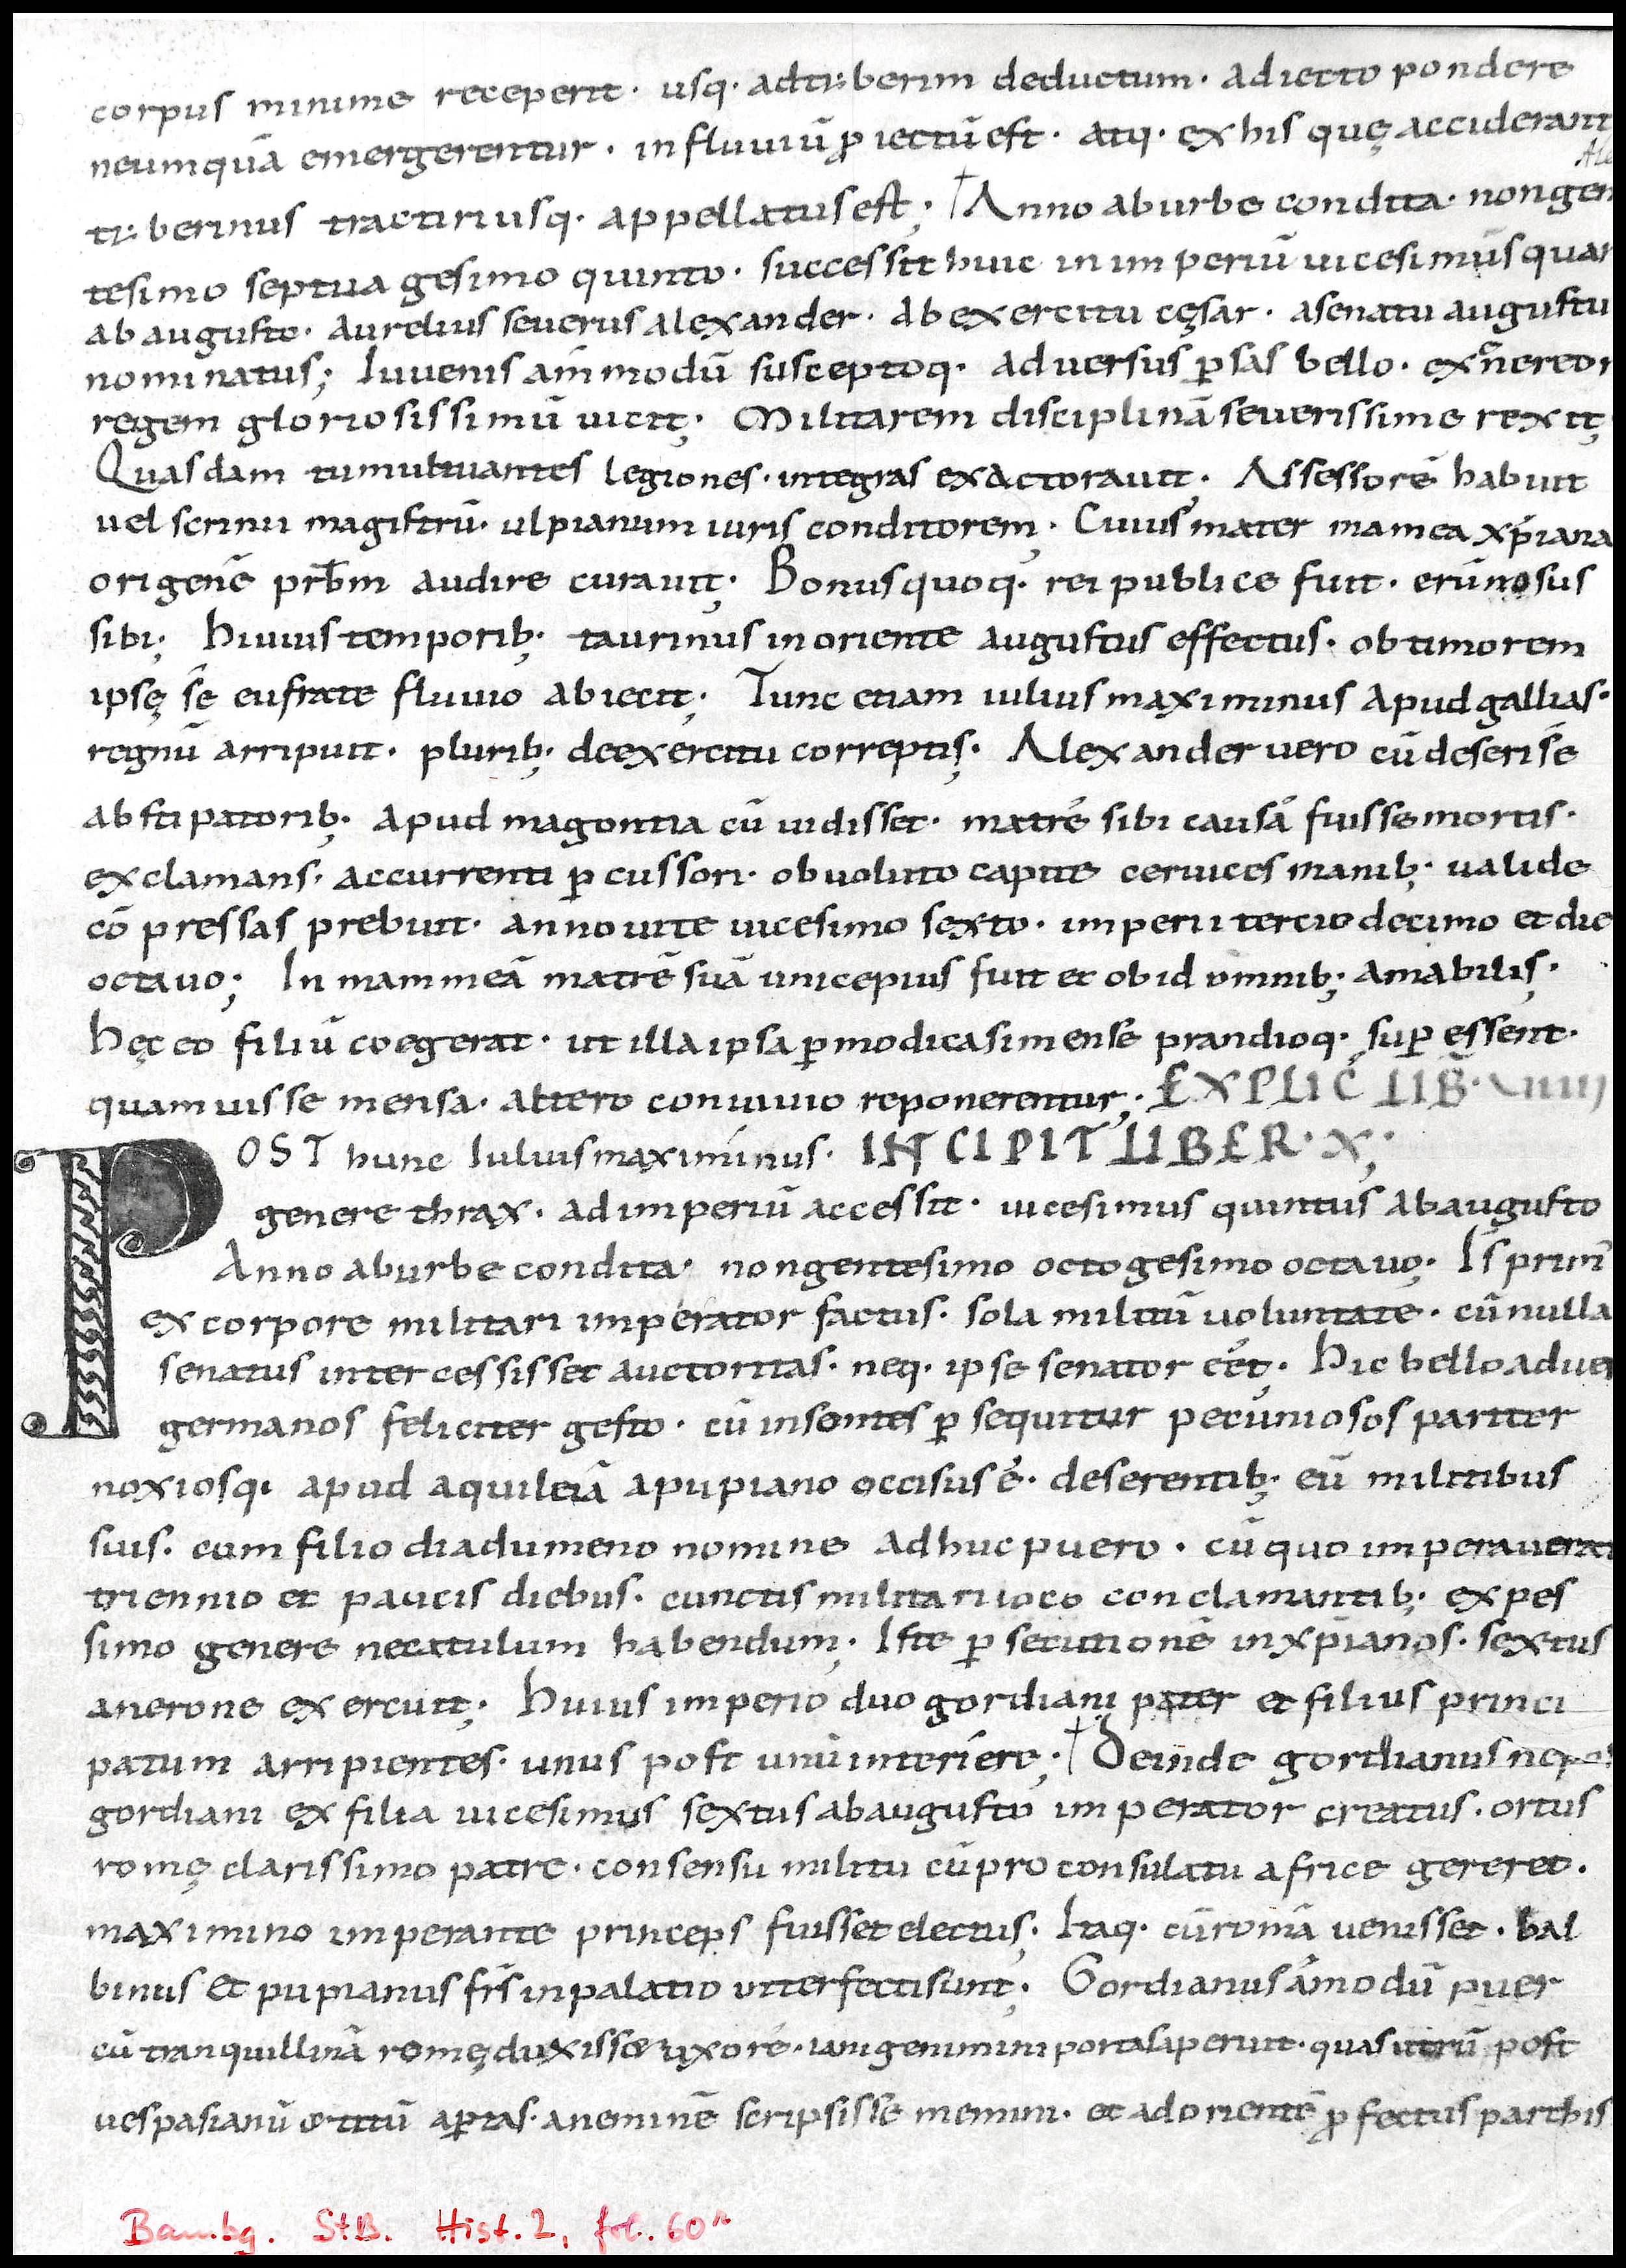 corpus minime receperit · usq· adtiberim deductum · adiecto pondere
neumquā emergerentur · influuiū ꝓiectū est · atq· ex his quę acciderant
tiberinus tractitiusq· appellatus est; †Anno aburbe condita · nongen
tesimo septuagesimo quinto · successit huic in imperiū uicesimus quar
ab augusto · aurelius seuerus alexander · ab exercitu cęsar · asenatu augustu
nominatus; Iuuenis ammodū susceptoq· aduersus ꝑsas bello ·
regem gloriosissimū uicit; Militarem disciplinā seuerissime rexit;
Quasdam tumultuantes legiones · integras exactorauit; Assessorē habuit
uel scrinii magistrū · ulpianum iuris conditorem; Cuius mater mamea xp̄iana
origenē prb̄m audire curauit; Bonus quoq· rei publice fuit · erūnosus
sibi; Huius temporib; taurinus inoriente augustus effectus · ob timorem
ipsę sē eufrate fluuio abiecit; Tunc etiam iulius maximinus apud gallias·
regnū arripuit · plurib; deexercitu correptis; Alexander uero cū deseri sē
ab stipatorib; apud magontia cū uidisset · matrē sibi causā fuisse mortis ·
exclamans · accurrenti ꝑcussori · obuoluto capite ceruices manib; ualide
cōpressas prebuit · anno uite uicesimo sexto · imperii tercio decimo et die
octauo; In mammeā matrē suā unicepius fuit et ob id omnib; amabilis;
Hęc eo filiū coegerat · ut illa ipsa ꝑmodica si mense prandioq· suꝑessent·
quamuis se mensa · altero conuiuio reponerentur; EXPLIC̄ LIB̄· VIIII
POST hunc Iulius maximinus · INCIPIT LIBER · X;
genere thrax · ad imperiū accessit · uicesimus quintus ab augusto
Anno aburbe condita · nongentesimo octogesimo octauo; Is prim̄
ex corpore militari imperator factus · sola militū uoluntate · cū nulla
senatus intercessisset auctoritas · neq· ipse senator eēt; Hic bello aduer
germanos feliciter gesto · cū insontes ꝑsequitur pecuniosos pariter
noxiosq· apud aquileiā apupiano occisus ē · deserentib; eū militibus
suis · cum filio diadumeno nomine adhuc puero · cū quo imperauerat
triennio et paucis diebus · cunctis militari ioco conclamantib; ex pes
simo genere nec catulum habendum; Iste ꝑsecutionē in xp̄ianos · sextus
anerone exercuit; Huius imperio duo gordiani pater et filius princi
patum arripientes · unus post unū interiere; †Deinde gordianus nepos
gordiani ex filia uicesimus sextus ab augusto imperator creatus · ortus
romę clarissimo patre · consensu militu cū proconsulatu africe gereret ·
maximino imperante princeps fuisset electus; Itaq· cū romā uenisset · bal
binus et pupianus fr̄s inpalatio interfecti sunt; Gordianus āmodū puer
cū tranquillinā romę duxisset uxorē · iani gemini portas aperuit · quas utrū post
uespasianū et titū aꝑtas · aneminē scripsisse memini · et ad orientē ꝓfectus parthis
Bambg. StB. Hist. 2, fol. 60r